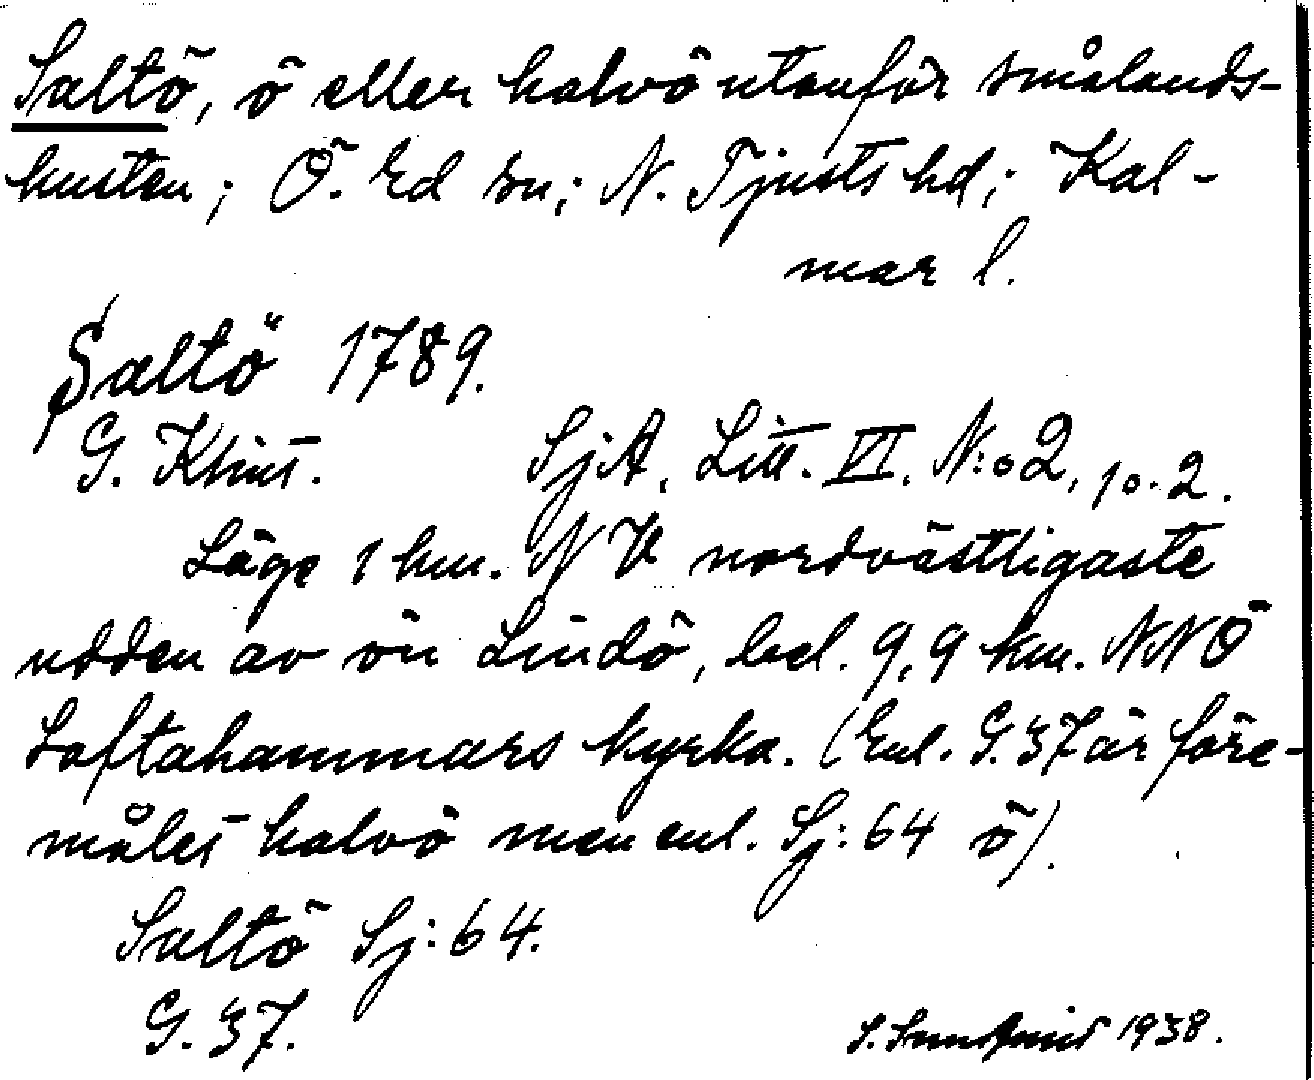 Saltö, ö eller halvö utanför smålands-
kusten; Ö. Ed sn; N. Tjusts hd; Kal-
mar l.
Saltö 1789.
G. Klint. SjA, Litt. VI. N:o 2, 10.2.
Läge 1 km. NV nordvästligaste
udden av ön Lindö, bel. 9,9 km. NNÖ
Loftahammars kyrka. (Enl. G. 37 är före-
målet halvö men enl. Sj: 64 ö).
Saltö Sj: 64.
G. 37.
1938.